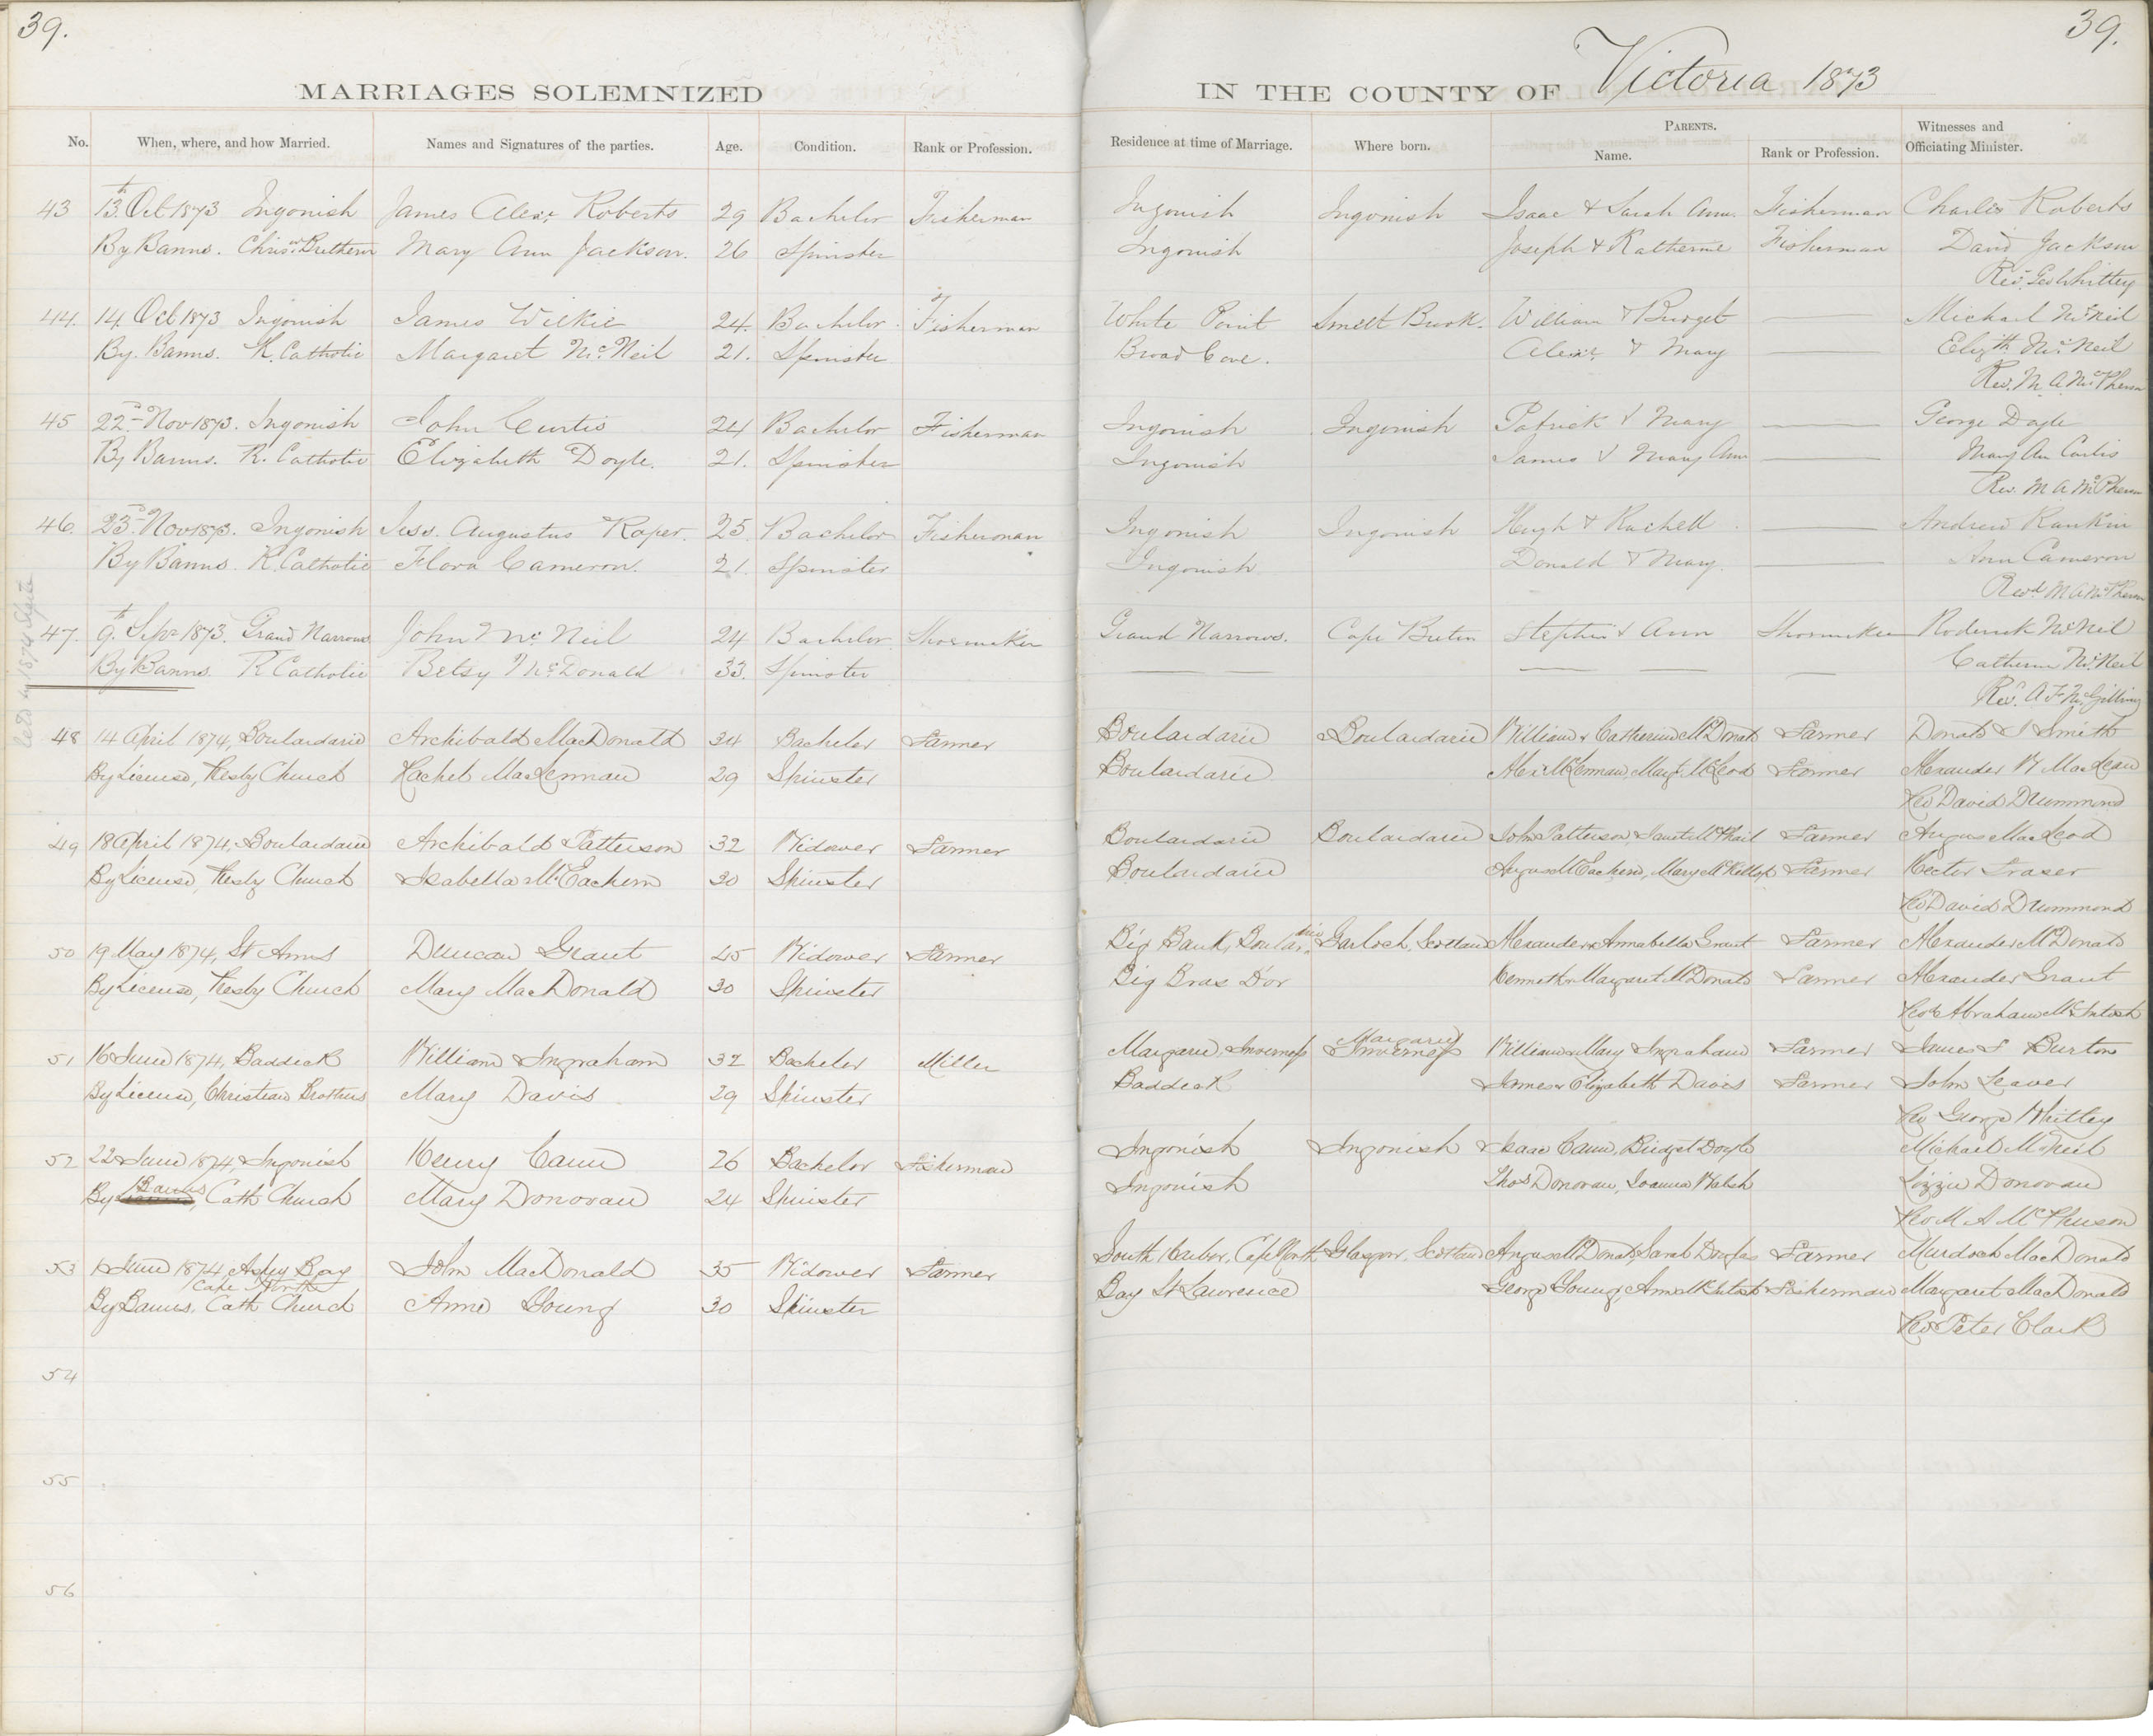 39.
39.
MARRIAGES SOLEMNIZED
IN THE COUNTY OF Victoria 1873
No. When, where, and how Married. Names and Signatures of the parties. Age. Condition. Rank or Profession. Residence at time of Marriage. Where born. PARENTS. Name. Rank or Profession. Witnesses and Officiating Minister.
43 13th Oct 1873 Ingonish James Alexr Roberts 29 Bachelor Fisherman Ingonish Ingonish Isaac & Sarah Ann Fisherman Charles Roberts
By Banns. Mary Ann Jackson. 26 Spinster Ingonish Joseph & Katherine Fisherman David Jackson
Revd. Geo Whittey
44. 14 Oct 1873 Ingonish James Wilkie 24. Bachelor Fisherman White Point William & Bridget Michael McNeil
By. Banns. R. Catholic Margaret McNeil 21. Spinster Broad Cove. Alexr & Mary Elizth McNeil
Rev. M. A. McPherson
45 22nd Nov 1873. Ingonish John Curtis 24 Bachelor Fisherman Ingonish Ingonish Patrick & Mary George Doyle
By Banns. R. Catholic Elizabeth Doyle. 21. Spinster Ingonish James & Mary Ann Mary An Curtis
Rev. M A McPherson
46. 23rd Nov 1873. Ingonish Augustus Roper. 25. Bachelor Fisherman Ingonish Ingonish Hugh & Rachell Andrew Rankin
By Banns. R. Catholic Flora Cameron. 21. Spinster Ingonish Donald & Mary. Ann Cameron
Revd M A McPherson
47. 9th Sepr 1873. Grand Narrows John McNeil 24 Bachelor Shoemaker Grand Narrows. Cape Breton Stephen & Ann Shoemaker Roderick McNeil
By Banns. R Catholic Betsy McDonald 33. Spinster Catherine McNeil
Revd. A. F. McGillivray
48 14 April 1874, Boulardarie Archibald MacDonald 34 Bachelor Farmer Boulardarie Boulardarie William & Catherine McDonald Farmer Donald S Smith
By License, Presby Church Rachel MacLennan 29 Spinster Boulardarie Alexr McLennan, Margt. McLeod Farmer Alexander W MacLean
Rev David Drummond
49 18 April 1874, Boulardarie Archibald Patterson 32 Widower Farmer Boulardarie Boulardarie John Patterson, Janet McPhail Farmer Angus MacLeod
By License, Presby Church Isabella McEachern 30 Spinster Boulardarie Angus McEachern, Mary McKillop Farmer Hector Fraser
Rev David Drummond
50 19 May 1874, St Anns Duncan Grant 45 Widower Farmer Big Bank, Boulardarie Gairloch, Scotland Alexander & Annabella Grant Farmer Alexander McDonald
By License, Presby Church Mary MacDonald 30 Spinster Big Bras D'or Kenneth & Margaret McDonald Farmer Alexander Grant
Revd Abraham McIntosh
51 16 June 1874, Baddeck William Ingraham 32 Bachelor Miller Margarie, Inverness Margarie Inverness William & Mary Ingraham Farmer James F Burton
By License, Christian Brothers Mary Davis 29 Spinster Baddeck James & Elizabeth Davis Farmer John Leaver
Rev George Whitley
52 22 June 1874, Ingonish Henry Cann 26 Bachelor Fisherman Ingonish Ingonish Isaac Cann, Bridget Doyle Michael McNeil
By Banns, Cath Church Mary Donovan 24 Spinster Ingonish Thos Donovan, Joanna Walsh Lizzie Donovan
Rev M A McPherson
53 1 June 1874 Aspy Bay John MacDonald 35 Widower Farmer South Harbor, Cape North Glasgow, Scotland Angus McDonald, Sarah Douglas Farmer Murdoch MacDonald
Cape North
By Banns, Cath Church Anne Young 30 Spinster Bay St Lawrence George Young, Ann McIntosh Fisherman Margaret MacDonald
Rev Peter Clark
54
55
56